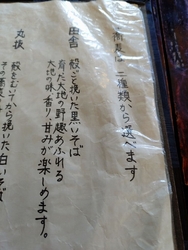 蕎麦は二種類から選べます
田舎
殻ごと挽いた黒いそば
育った大地の野趣あふれる
大地の味香り、甘みが楽しめます。
丸抜
殻をむいてから挽いた白いそば